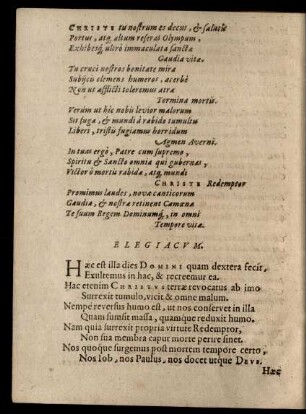 CHRISTE tu nostrum es decus, & salutis
Portus, atq; altum reseras Olympum,
Exhibesq; ultrò immaculata sanctæ
Gaudia vitæ.
Tu cruci nostros bonitate mira
Subijcis clemens humeros, acerbè
Non ut afflicti toleremus atræ
Tormina mortis.
Verùm ut hic nobis levior malorum
Sit fuga, & mundi à rabido tumultu
Liberi, tristis fugiamus horridum
Agmen Averni.
In tuas ergò, Patre cum supremo,
Spiritu & Sancto omnia qui gubernas,
Victor ò mortis rabidæ, atq; mundi
CHRISTE Redemptor
Promimus laudes, nova canticorum
Gaudia, & nostra retinent Camœnæ
Te suum Regem Dominumq́;, in omni
Tempore vitæ.
ELEGIACVM.
Hæc est illa dies DOMINI quam dextera fecit,
Exultemus in hac, & recreemur ea.
Hac etenim CHRISTVS terræ revocatus ab imo
Surrexit tumulo, vicit & omne malum.
Nempe reversus humo est, ut nos conservet in illa
Quam sumsit massa, quamque reduxit humo.
Nam quia surrexit propria virtute Redemptor,
Non sua membra caput morte perire sinet.
Nos quoque surgemus post mortem tempore certo,
Nos Iob, nos Paulus, nos docet utque DEVS.
Hæc